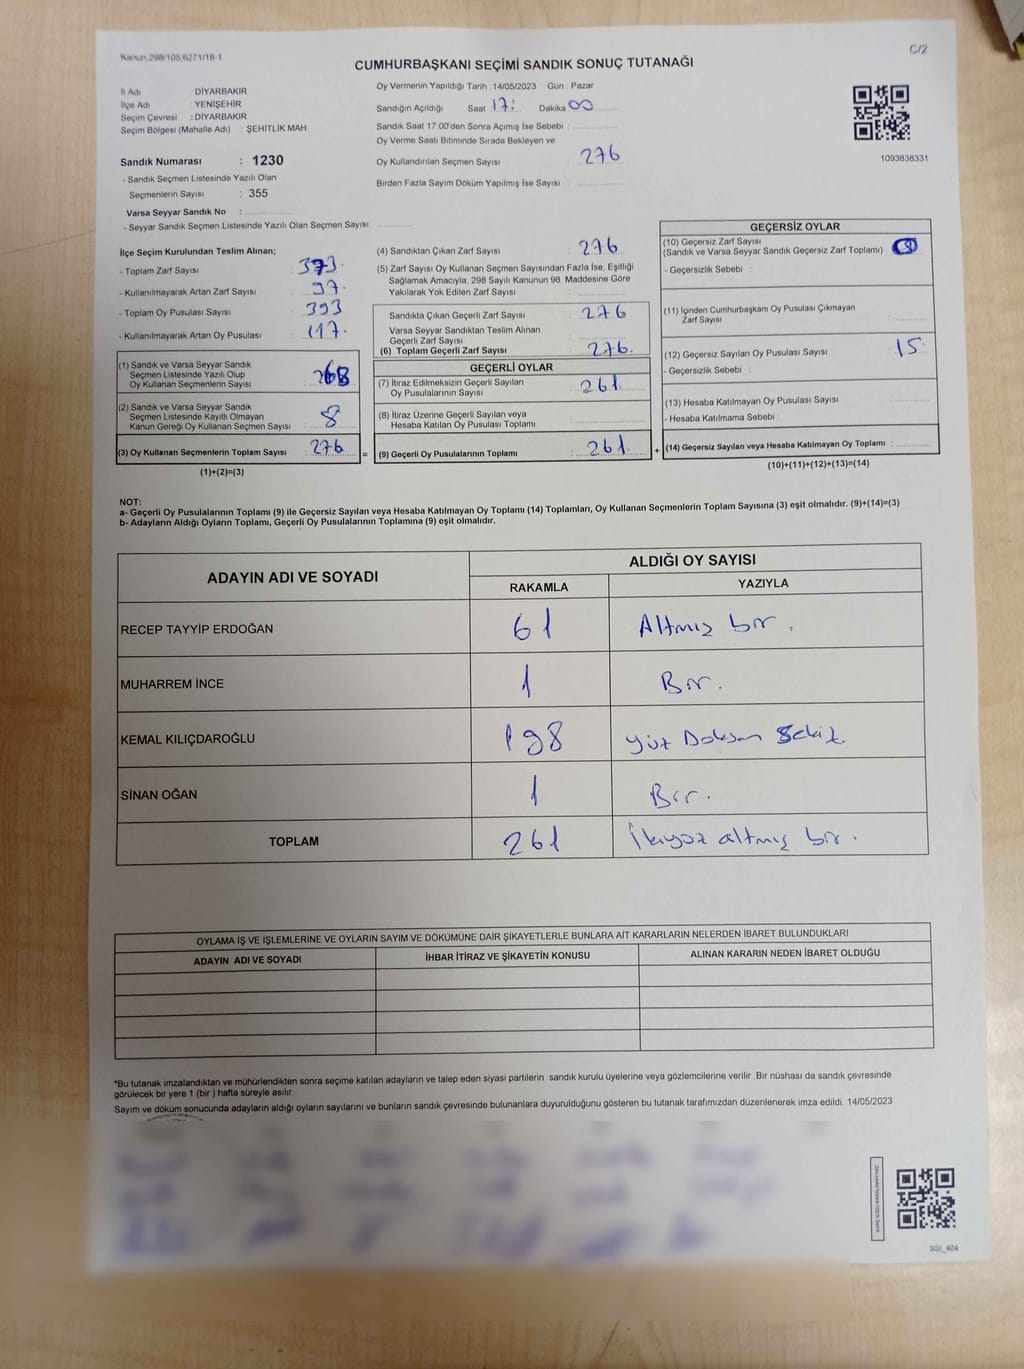 Kanun,298/105,6271/18-1
C/2
CUMHURBAŞKANI SEÇİMİ SANDIK SONUÇ TUTANAĞI
İl Adı : DİYARBAKIR
İlçe Adı : YENİŞEHİR
Seçim Çevresi : DİYARBAKIR
Seçim Bölgesi (Mahalle Adı) : ŞEHİTLİK MAH.
Oy Vermenin Yapıldığı Tarih : 14/05/2023 Gün : Pazar
Sandığın Açıldığı Saat 17: Dakika 00
Sandık Saat 17:00'den Sonra Açımış İse Sebebi :
Oy Verme Saati Bitiminde Sırada Bekleyen ve
Oy Kullandırılan Seçmen Sayısı : 276
Birden Fazla Sayım Döküm Yapılmış İse Sayısı :
1093838331
Sandık Numarası : 1230
- Sandık Seçmen Listesinde Yazılı Olan
Seçmenlerin Sayısı : 355
Varsa Seyyar Sandık No :
- Seyyar Sandık Seçmen Listesinde Yazılı Olan Seçmen Sayısı:
İlçe Seçim Kurulundan Teslim Alınan;
- Toplam Zarf Sayısı : 373.
- Kullanılmayarak Artan Zarf Sayısı : 97.
- Toplam Oy Pusulası Sayısı : 393
- Kullanılmayarak Artan Oy Pusulası : 117.
(1) Sandık ve Varsa Seyyar Sandık
Seçmen Listesinde Yazılı Olup
Oy Kullanan Seçmenlerin Sayısı : 268
(2) Sandık ve Varsa Seyyar Sandık
Seçmen Listesinde Kayıtlı Olmayan
Kanun Gereği Oy Kullanan Seçmen Sayısı : 8
(3) Oy Kullanan Seçmenlerin Toplam Sayısı : 276
(1)+(2)=(3)
=
(4) Sandıktan Çıkan Zarf Sayısı : 276
(5) Zarf Sayısı Oy Kullanan Seçmen Sayısından Fazla İse, Eşitliği
Sağlamak Amacıyla, 298 Sayılı Kanunun 98. Maddesine Göre
Yakılarak Yok Edilen Zarf Sayısı :
Sandıkta Çıkan Geçerli Zarf Sayısı : 276
Varsa Seyyar Sandıktan Teslim Alınan
Geçerli Zarf Sayısı :
(6) Toplam Geçerli Zarf Sayısı : 276.
GEÇERLİ OYLAR
(7) İtiraz Edilmeksizin Geçerli Sayılan
Oy Pusulalarının Sayısı : 261
(8) İtiraz Üzerine Geçerli Sayılan veya
Hesaba Katılan Oy Pusulası Toplamı :
(9) Geçerli Oy Pusulalarının Toplamı : 261
+
GEÇERSİZ OYLAR
(10) Geçersiz Zarf Sayısı
(Sandık ve Varsa Seyyar Sandık Geçersiz Zarf Toplamı) :
- Geçersizlik Sebebi :
(11) İçinden Cumhurbaşkanı Oy Pusulası Çıkmayan
Zarf Sayısı :
(12) Geçersiz Sayılan Oy Pusulası Sayısı : 15
- Geçersizlik Sebebi :
(13) Hesaba Katılmayan Oy Pusulası Sayısı :
- Hesaba Katılmama Sebebi :
(14) Geçersiz Sayılan veya Hesaba Katılmayan Oy Toplamı :
(10)+(11)+(12)+(13)=(14)
NOT:
a- Geçerli Oy Pusulalarının Toplamı (9) ile Geçersiz Sayılan veya Hesaba Katılmayan Oy Toplamı (14) Toplamları, Oy Kullanan Seçmenlerin Toplam Sayısına (3) eşit olmalıdır. (9)+(14)=(3)
b- Adayların Aldığı Oyların Toplamı, Geçerli Oy Pusulalarının Toplamına (9) eşit olmalıdır.
ADAYIN ADI VE SOYADI
ALDIĞI OY SAYISI
RAKAMLA YAZIYLA
RECEP TAYYİP ERDOĞAN 61 Altmış bir.
MUHARREM İNCE 1 Bir.
KEMAL KILIÇDAROĞLU 198 Yüz Doksan Sekiz.
SİNAN OĞAN 1 Bir.
TOPLAM 261 İkiyüz altmış bir.
OYLAMA İŞ VE İŞLEMLERİNE VE OYLARIN SAYIM VE DÖKÜMÜNE DAİR ŞİKAYETLERLE BUNLARA AİT KARARLARIN NELERDEN İBARET BULUNDUKLARI
ADAYIN ADI VE SOYADI İHBAR İTİRAZ VE ŞİKAYETİN KONUSU ALINAN KARARIN NEDEN İBARET OLDUĞU
*Bu tutanak imzalandıktan ve mühürlendikten sonra seçime katılan adayların ve talep eden siyasi partilerin sandık kurulu üyelerine veya gözlemcilerine verilir. Bir nüshası da sandık çevresinde
görülecek bir yere 1 (bir ) hafta süreyle asılır.
Sayım ve döküm sonucunda adayların aldığı oyların sayılarını ve bunların sandık çevresinde bulunanlara duyurulduğunu gösteren bu tutanak tarafımızdan düzenlenerek imza edildi. 14/05/2023
KARE KODU KARALAMAYINIZ
SSI_404